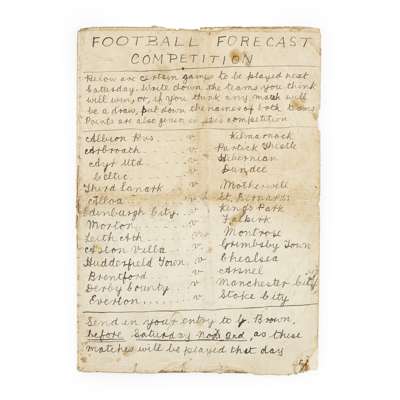 FOOTBALL FORECAST
COMPETITION
Below are certain games to be played next
Saturday. Write down the teams you think
will win, or, if you think any match will
be a draw, put down the names of both teams
Points are also given in this competition
Albion Rvs. v Kilmarnock
Arbroath v Partick Thistle
Ayr Utd. v Hibernian
Celtic v Dundee
Third Lanark v Motherwell
Alloa v St. Bernards
Edinburgh City v Kings Park
Morton v Falkirk
Leith Ath Montrose
Aston Villa v Grimsby Town
Hudderfield Town v Chealsea
Brentford v Arsnel
Derby County v Manchester City
Everton v Stoke City
Send in your entry to J. Brown,
before Saturday , as these
matches will be played that day